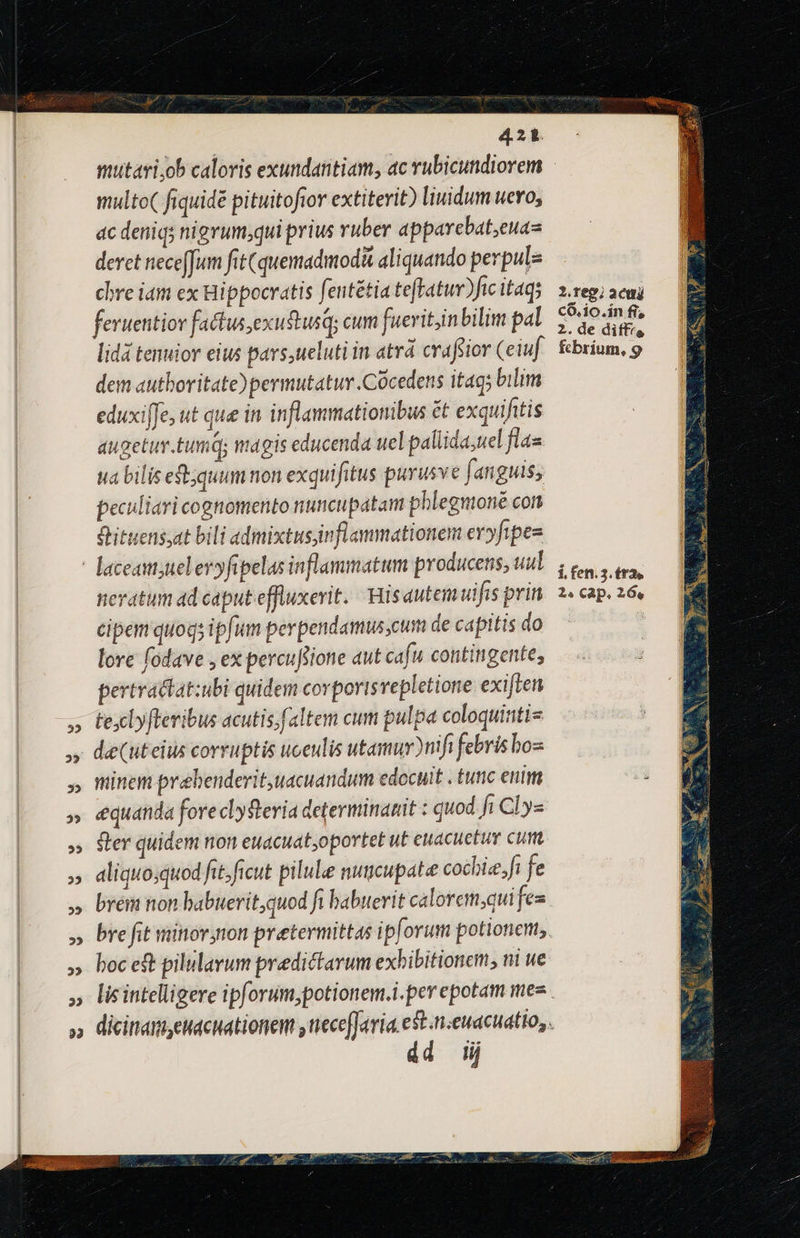 421
mutari,ob caloris exundantiam, ac rubicundiorem
multo( siquidē pituitosior extiterit) liuidum uero,
ac deniq; nigrum,qui prius ruber apparebat,eua=
deret necessum sit(quemadmodū aliquando perpul=
chre iam ex Hippocratis sentētia testatur)sic itaq;
feruentior factus,exustusq́; cum fuerit,in bilim pal
lidā tenuior eius pars,ueluti in atrā crassior (eius
dem authoritate)permutatur.Cōcedens itaq; bilim
eduxisse, ut quæ in inflammationibus & exquisitis
augetur.tumq́; magis educenda uel pallida,uel fla=
ua bilis est,quum non exquisitus purusve sanguis,
peculiari cognomento nuncupatam phlegmonē con
stituens,at bili admixtus,inflammationem erysipe=
laceam,uel erysipelas inflammatum producens, uul
neratum ad caput effluxerit. His autem uisis prin
cipem quoq; ipsum perpendamus,cum de capitis do
lore sodave , ex percussione aut casu contingente,
pertractat:ubi quidem corporis repletione existen
,, te,clysteribus acutis,saltem cum pulpa coloquinti=
,, dæ(ut eius corruptis uoculis utamur)nisi febris ho=
,, minem præhenderit,uacuandum edocuit . tunc enim
,, æquanda fore clysteria determinauit : quod si Cly=
,, ster quidem non euacuat,oportet ut euacuetur cum
,, aliquo,quod sit,sicut pilulæ nuncupatæ cochiæ,si fe
,, brem non habuerit,quod si habuerit calorem,qui fe=
,, bre sit minor,non prætermittas ipsorum potionem,
,, hoc est pilularum prædictarum exhibitionem, ni ue
,, lis intelligere ipsorum,potionem.i.per epotam me=
,, dicinam,euacuationem , necessaria est.n.euacuatio,
dd iij
2.reg; acuū
cō.10.in fi,
2. de diffrē
febrium. 9
i. fen. 3. tra,
2. cap. 26.